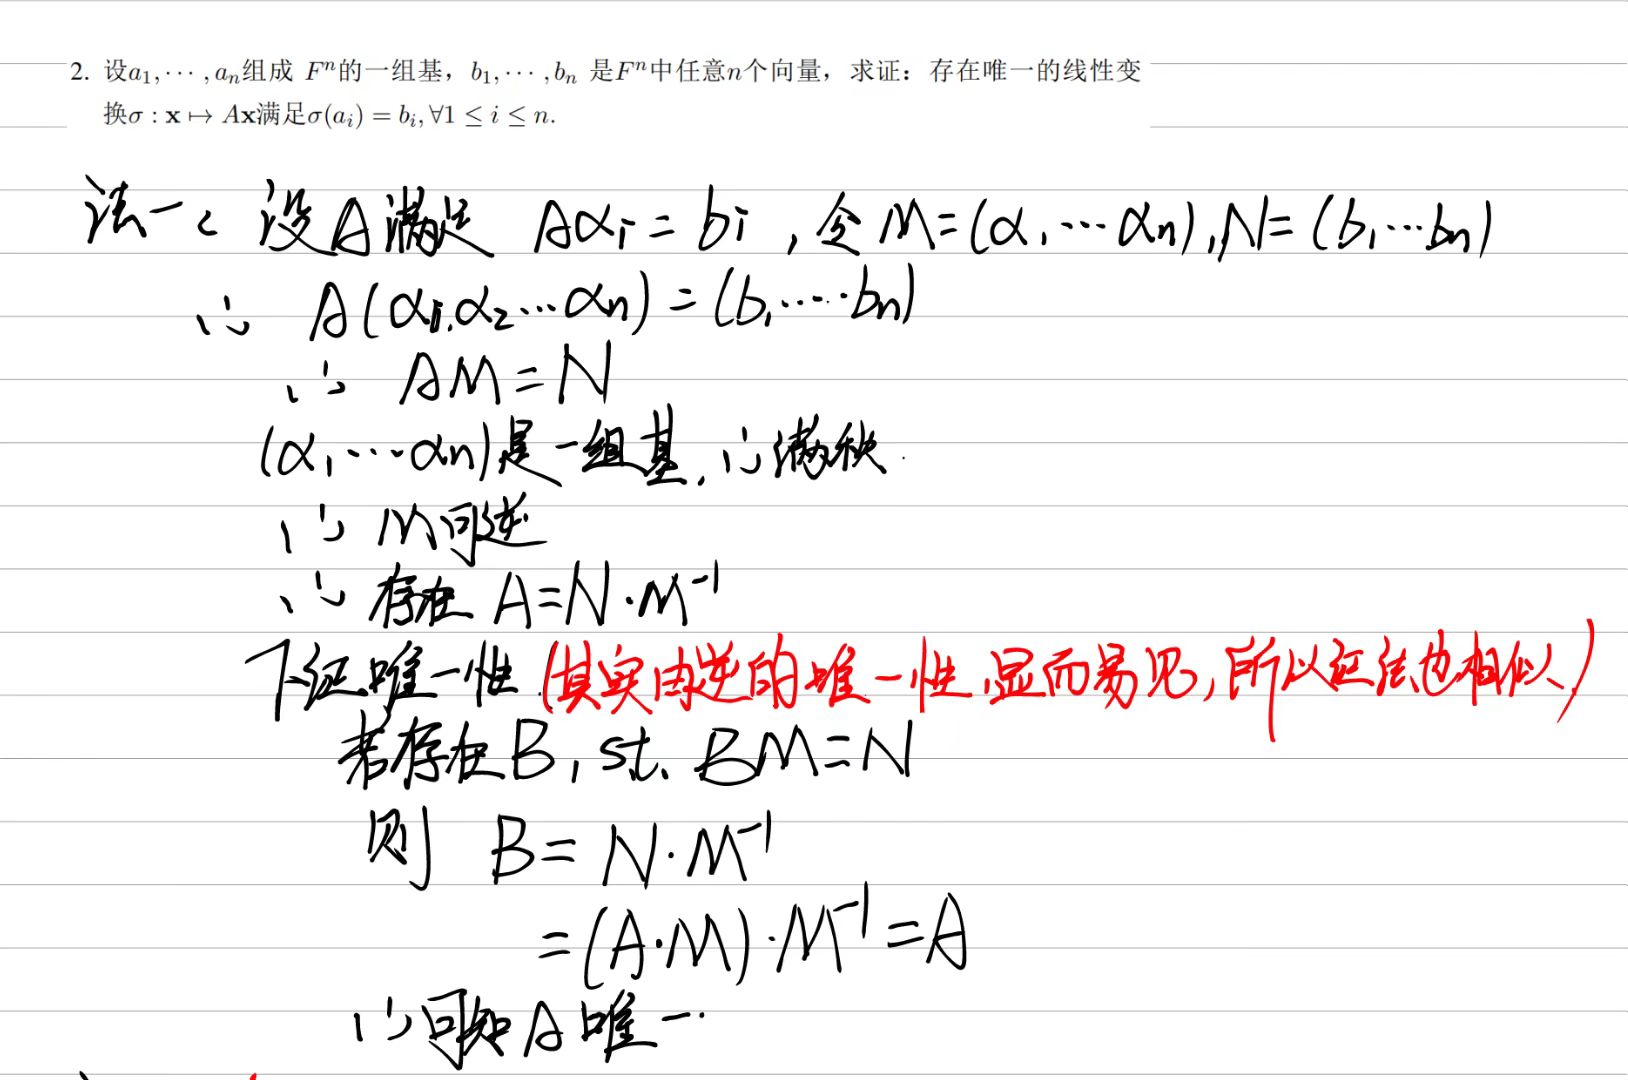 2. 设a₁, ··· , aₙ组成 Fⁿ的一组基，b₁, ··· , bₙ 是Fⁿ中任意n个向量，求证：存在唯一的线性变
换σ : x ↦ Ax满足σ(aᵢ) = bᵢ, ∀1 ≤ i ≤ n.
法一： 设A满足 Aαᵢ = bᵢ , 令 M=(α₁ ··· αₙ), N=(b₁···bₙ)
∴ A(α₁,α₂···αₙ) = (b₁,····bₙ)
∴ AM=N
(α₁···αₙ)是一组基, ∴满秩.
∴ M可逆
∴ 存在 A=N·M⁻¹
下证唯一性 (其实由逆的唯一性,显而易见,所以证法也相似)
若存在B, st. BM=N
则 B= N·M⁻¹
=(A·M)·M⁻¹=A
∴可知A唯一.